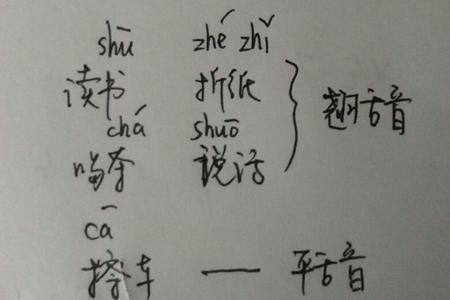 shū zhé zhǐ
读书 折纸
chá shuō
喝茶 说话
翘舌音
cā
擦车 — 平舌音